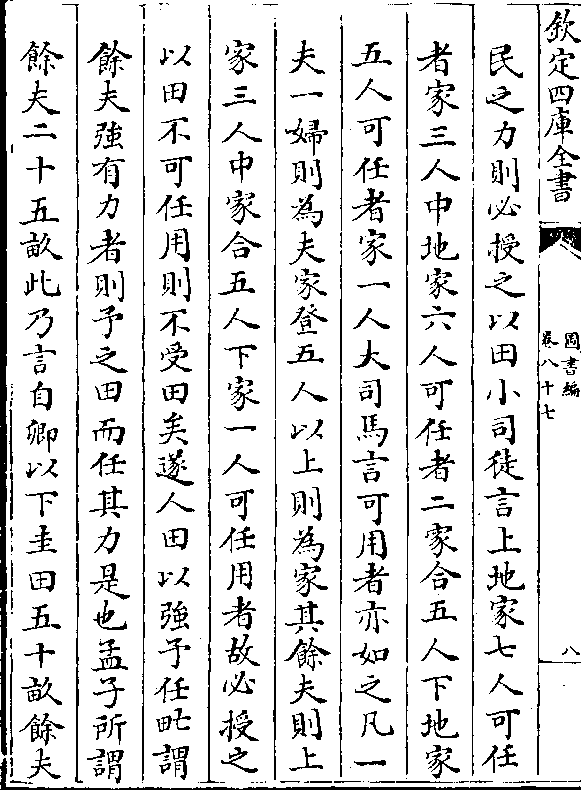 欽定四庫全書
圖書編
卷八十七
八
民之力則必授之以田小司徒言上地家七人可任
者家三人中地家六人可任者二家合五人下地家
五人可任者家一人大司馬言可用者亦如之凡一
夫一婦則為夫家登五人以上則為家其餘夫則上
家三人中家合五人下家一人可任用者故必授之
以田不可任用則不受田矣遂人田以強予任甿謂
餘夫強有力者則予之田而任其力是也孟子所謂
餘夫二十五畝此乃言自卿以下圭田五十畝餘夫